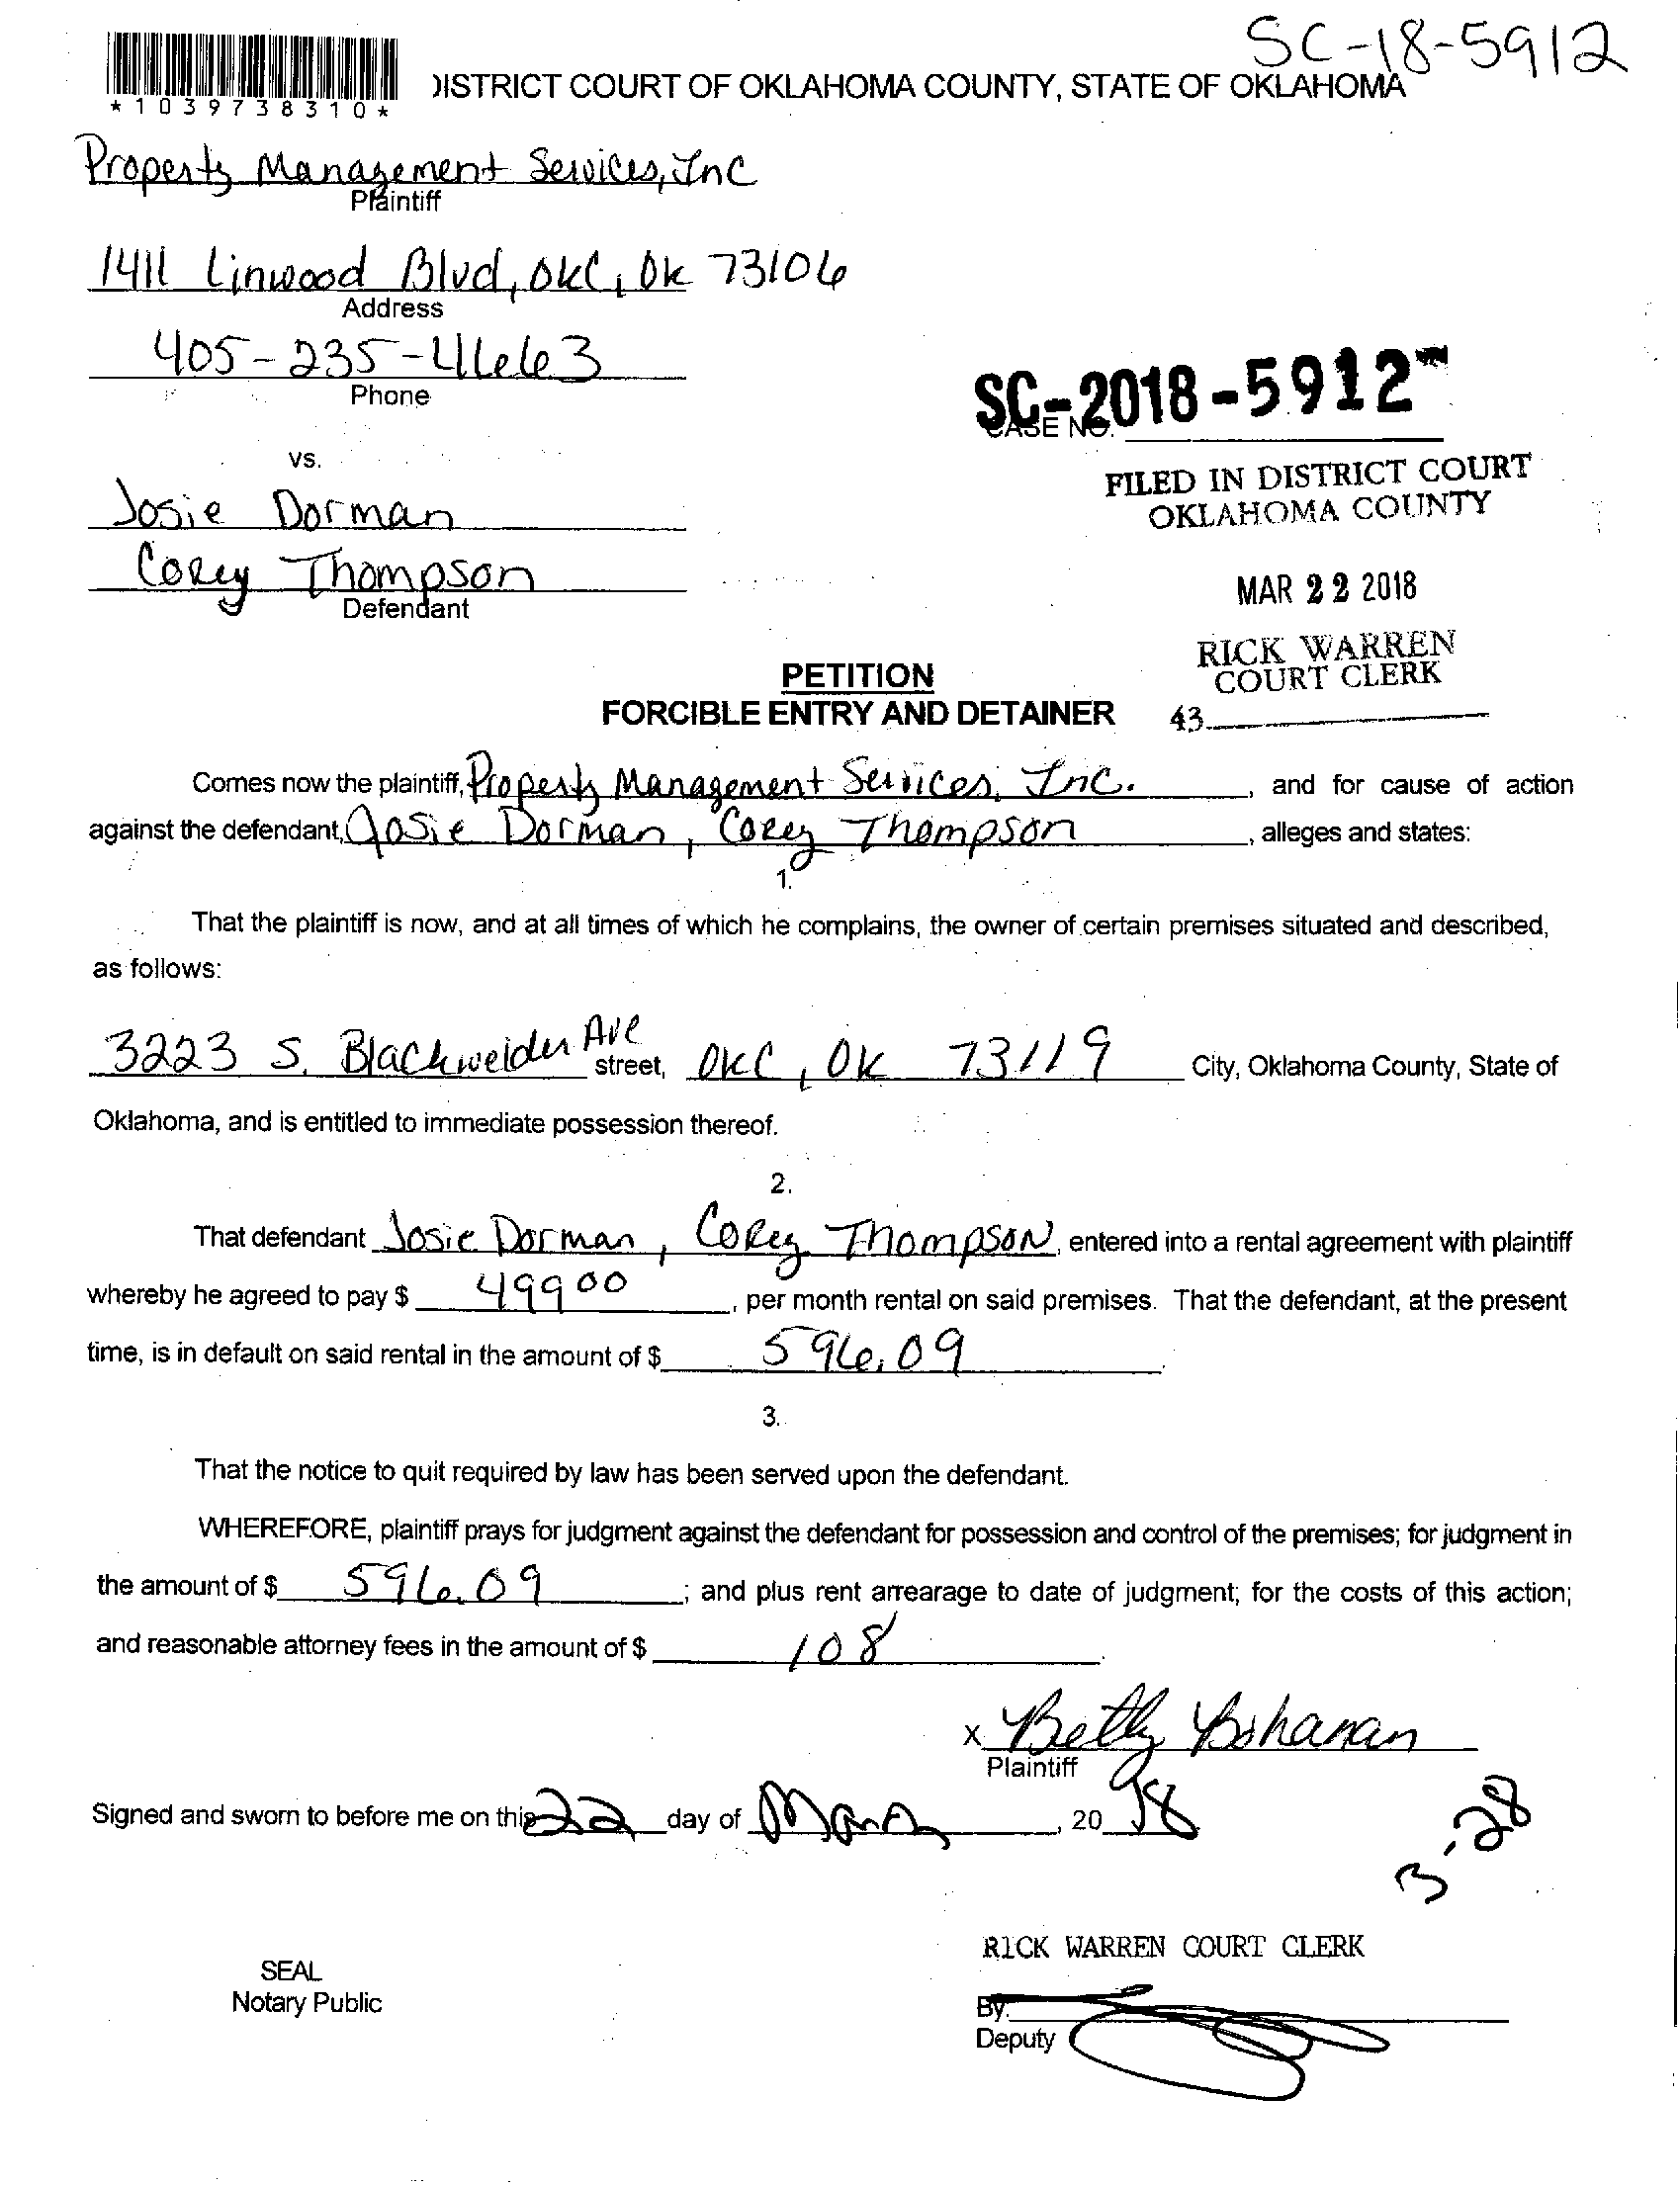 SC-18-5912
*1039738310*
DISTRICT COURT OF OKLAHOMA COUNTY, STATE OF OKLAHOMA
Property Management Services, Inc
Plaintiff
1411 Linwood Blvd, OKC, OK 73106
Address
405-235-4663
Phone
SC-2018-5912
CASE NO.
vs.
FILED IN DISTRICT COURT
OKLAHOMA COUNTY
Josie Dorman
Corey Thompson
Defendant
MAR 22 2018
RICK WARREN
COURT CLERK
43
PETITION
FORCIBLE ENTRY AND DETAINER
Comes now the plaintiff, Property Management Services, Inc. , and for cause of action
against the defendant, Josie Dorman, Corey Thompson , alleges and states:
1.
That the plaintiff is now, and at all times of which he complains, the owner of certain premises situated and described,
as follows:
3223 S. Blackwelder Ave street, OKC, OK 73119 City, Oklahoma County, State of
Oklahoma, and is entitled to immediate possession thereof.
2.
That defendant Josie Dorman, Corey Thompson, entered into a rental agreement with plaintiff
whereby he agreed to pay $ 499 00 , per month rental on said premises. That the defendant, at the present
time, is in default on said rental in the amount of $ 596.09 .
3.
That the notice to quit required by law has been served upon the defendant.
WHEREFORE, plaintiff prays for judgment against the defendant for possession and control of the premises; for judgment in
the amount of $ 596.09 ; and plus rent arrearage to date of judgment; for the costs of this action;
and reasonable attorney fees in the amount of $ 108 .
x Betty Bohanan
Plaintiff
Signed and sworn to before me on this 22 day of March , 20 18
3-28
RICK WARREN COURT CLERK
SEAL
Notary Public
By:
Deputy